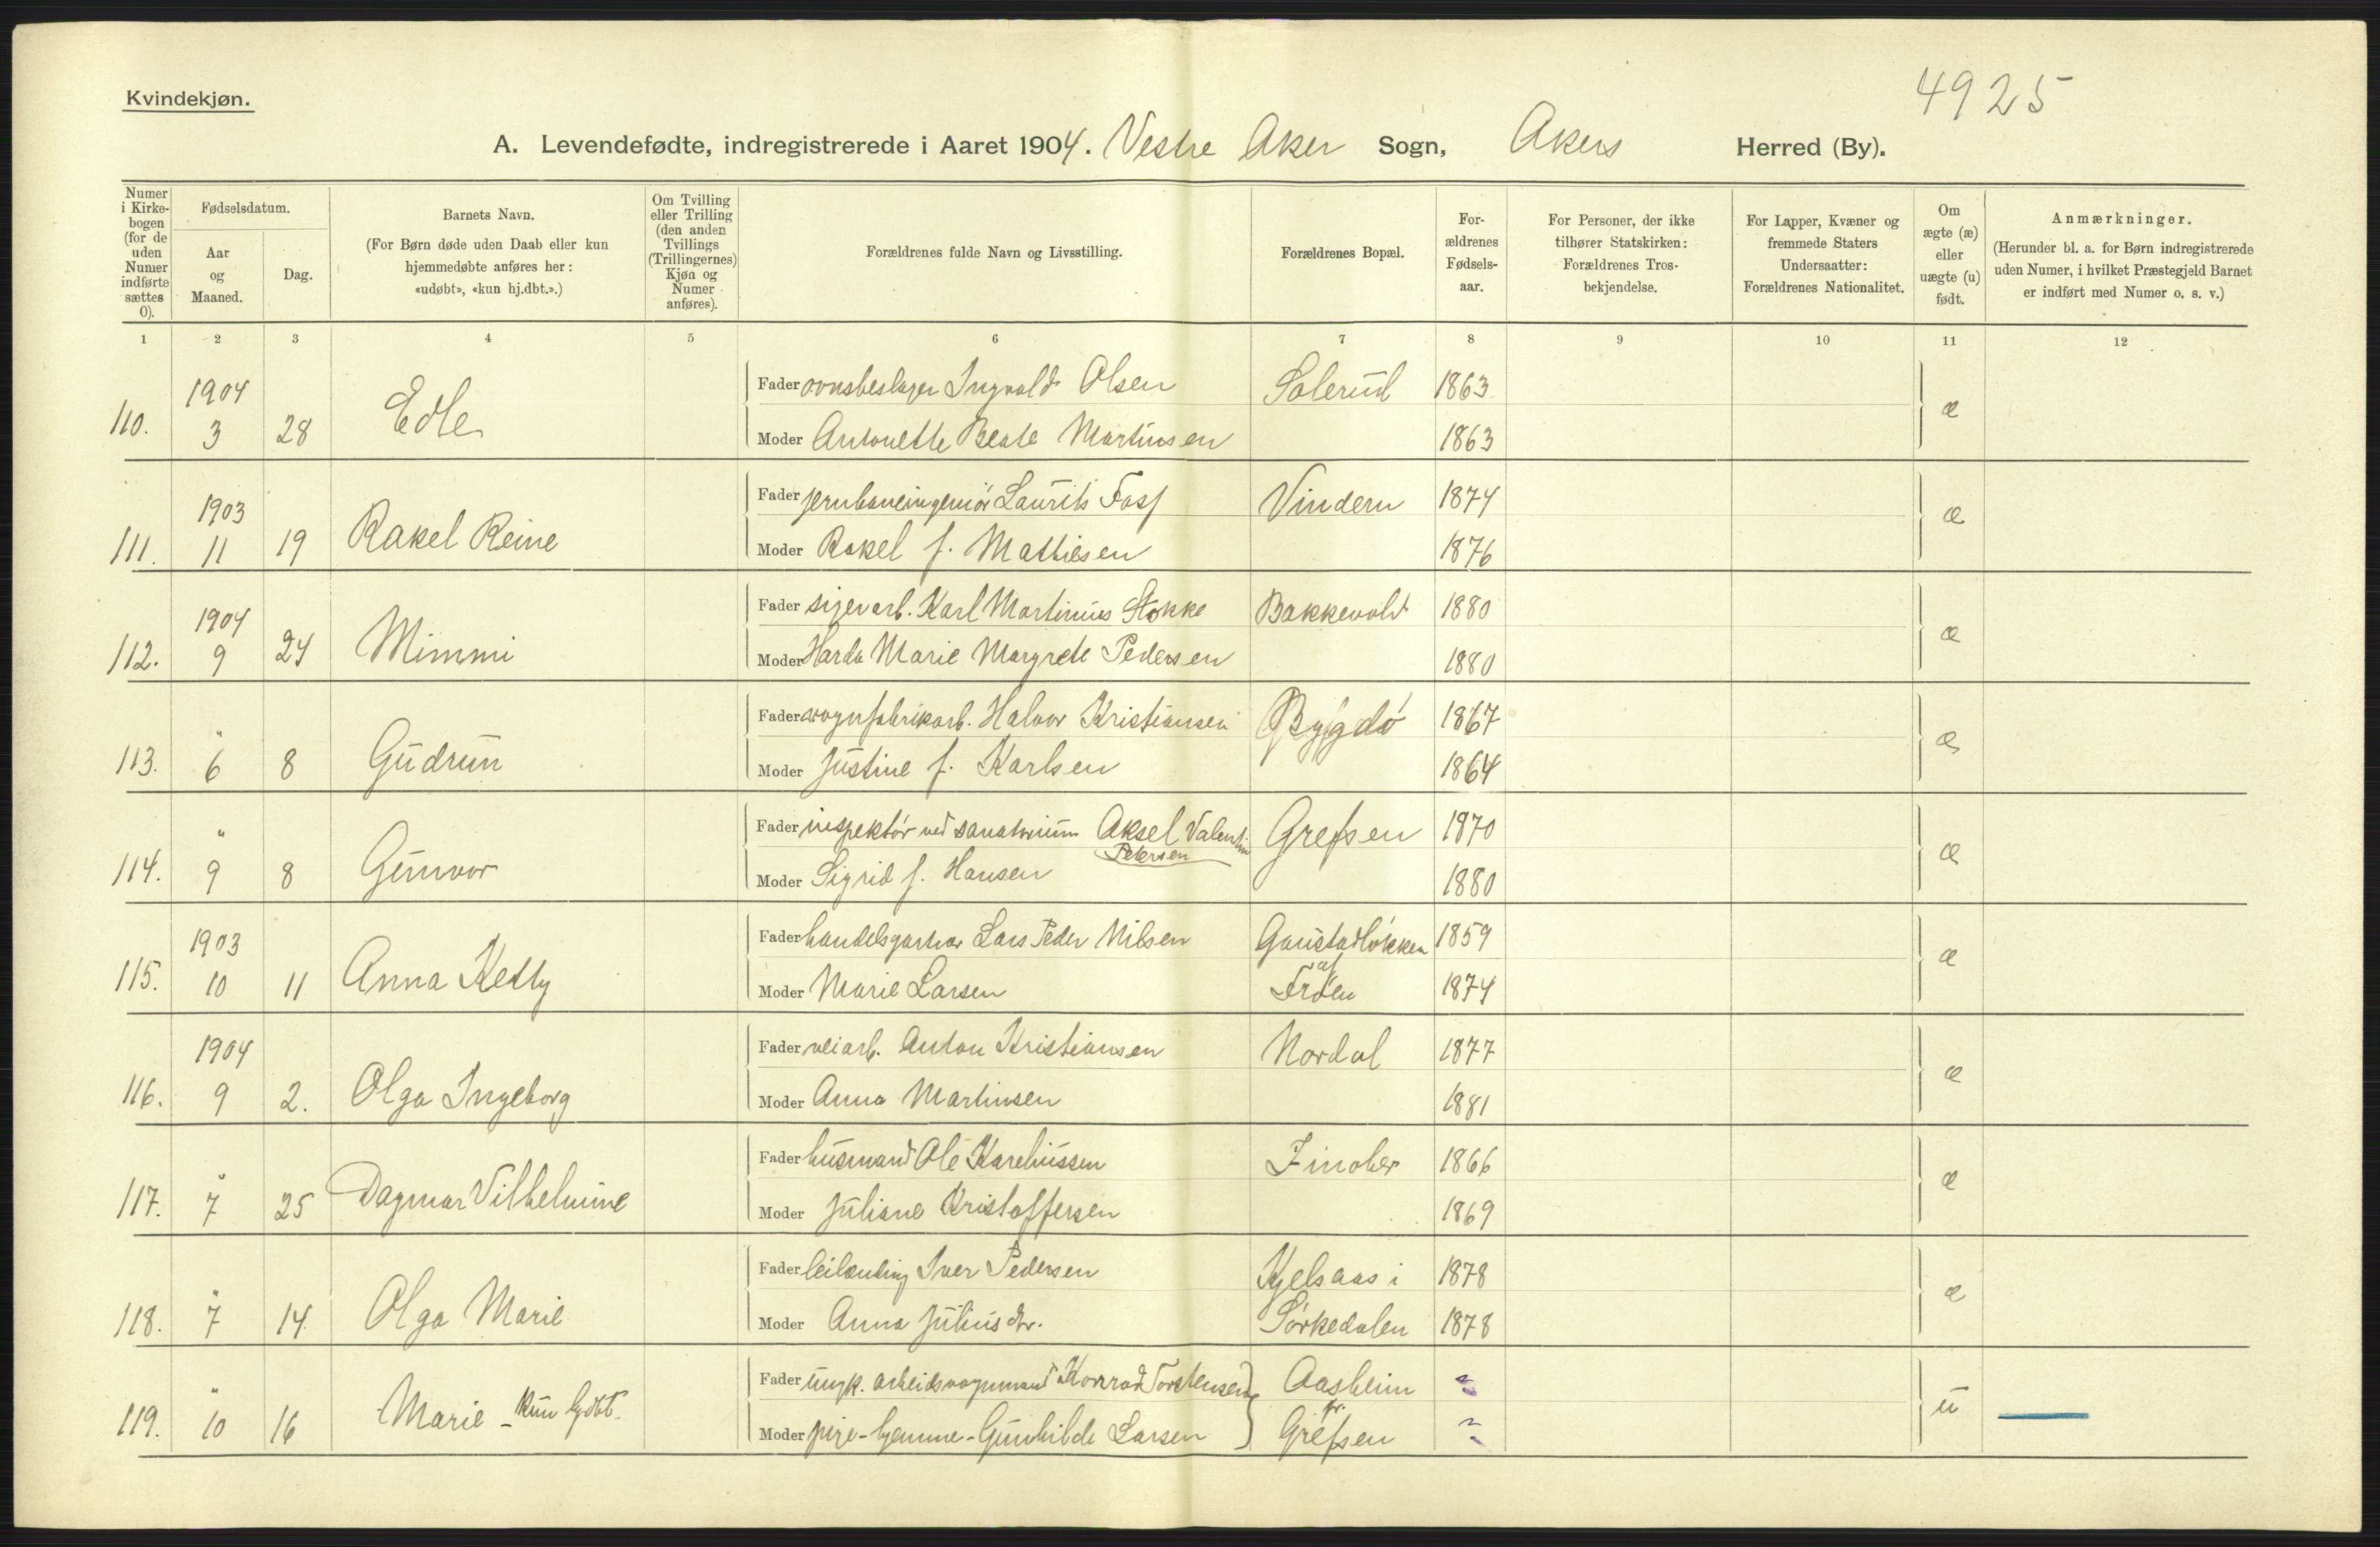 4925
Kvindekjøn.
A. Levendefødte, indregistrerede i Aaret 1904. Vestre Aker Sogn, Akers Herred (By).
Numer i Kirke-bogen (for de uden Numer indførte sættes 0).
Fødselsdatum.
Aar og Maaned.
Dag.
Barnets Navn.
(For Børn døde uden Daab eller kun hjemmedøbte anføres her: «udøbt», «kun hj.dbt.».)
Om Tvilling eller Trilling (den anden Tvillings (Trillingernes) Kjøn og Numer anføres).
Forældrenes fulde Navn og Livsstilling.
Forældrenes Bopæl.
For-ældrenes Fødsels-aar.
For Personer, der ikke tilhører Statskirken: Forældrenes Tros-bekjendelse.
For Lapper, Kvæner og fremmede Staters Undersaatter: Forældrenes Nationalitet.
Om ægte (æ) eller uægte (u) født.
Anmærkninger.
(Herunder bl. a. for Børn indregistrerede uden Numer, i hvilket Præstegjeld Barnet er indført med Numer o. s. v.)
1 2 3 4 5 6 7 8 9 10 11 12
1904 Fader ovnsbeslager Ingvald Olsen Solerud 1863 æ
110. 3 28 Edle Moder Antonette Beate Martinsen 1863
1903 Fader jernbaneingeniør Laurits Foss Vindern 1874 æ
111. 11 19 Rakel Reine Moder Rakel f. Mathiesen 1876
1904 Fader Karl Martinius Stokke Bakkevold 1880 æ
112. 9 24 Mimmi Moder Marie Margrete Pedersen 1880
" Fader vognfabrikarb. Halvor Kristiansen Bygdö 1867 æ
113. 6 8 Gudrun Moder Justine f. Karlsen 1864
" Fader inspektör ved sanatorium Aksel Valentin Petersen Grefsen 1870 æ
114. 9 8 Gunvor Moder Sigrid f. Hansen 1880
1903 Fader handelsgartner Lars Peder Nilsen Gaustadløkken 1859 æ
115. 10 11 Anna Ketty Moder Marie Larsen af Frøen 1874
1904 Fader veiarb. Anton Kristiansen Nordal 1877 æ
116. 9 2. Olga Ingeborg Moder Anna Martinsen 1881
" Fader husmand Ole Kareliussen Zinober 1866 æ
117. 7 25 Dagmar Vilhelmine Moder Juliane Kristoffersen 1869
" Fader leilænding Iver Pedersen Kjelsaas i 1878 æ
118. 7 14. Olga Marie Moder Anna Juliusdtr. Sörkedalen 1878
" Fader ungk. arbeidsvognmand Konrad Torstensen Aasheim ~ u
119. 10 16 Marie - kun hjdbt. Moder pige - hjemme - Gunhilde Larsen pr. Grefsen ~